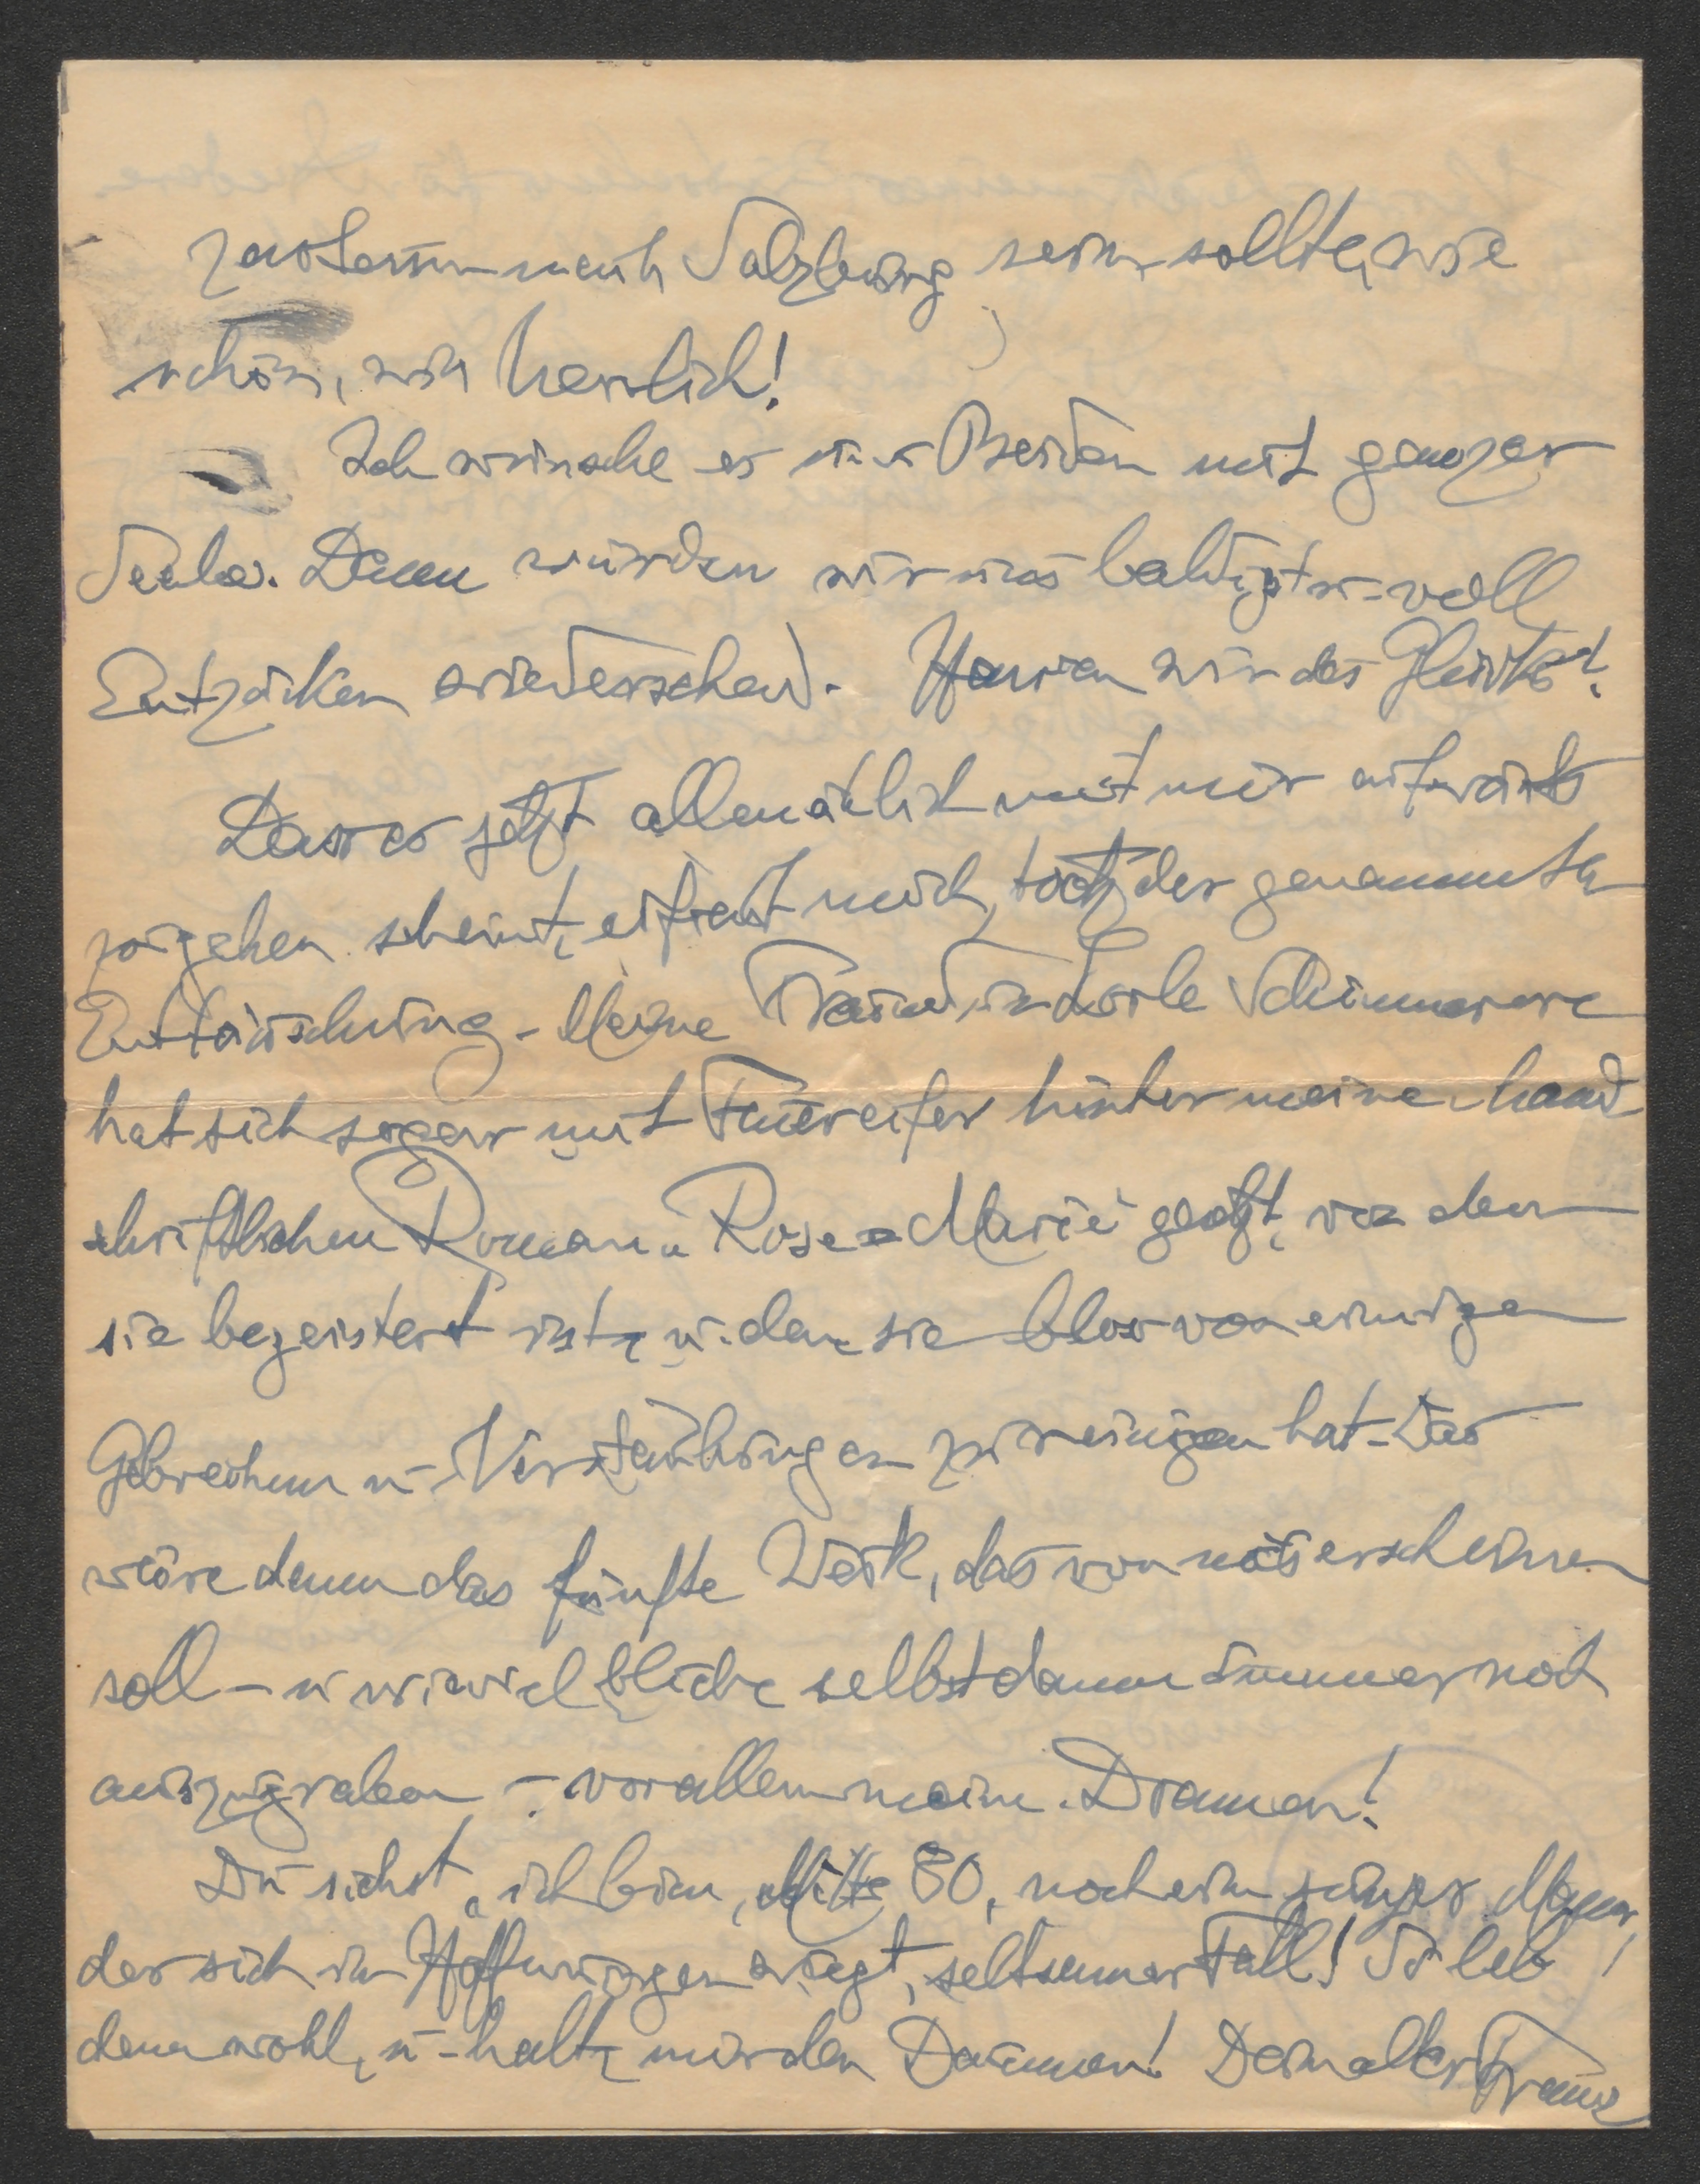 nach Salzburg sein sollte, wie
schön, wie herrlich!
Ich wünsche es uns Beiden mit ganzer
Seele. Dann würden wir uns baldigst u. voll
Entzücken wiedersehen. Harren wir des Glücks!
Dass es jetzt allmählich mit mir aufwärts
zugehen scheint, erfreut mich, trotz der genannten
Enttäuschung. Meine Freundin Lorle
hat sich sogar mit Feuereifer hinter meinen hand
schriftlichen Roman „Rose-Marie" gesetzt, von dem
sie begeistert ist, u. den sie blos von einigen
Gebrechen u. Verstaubungen zu reinigen hat. Das
wäre dann das fünfte Werk, das von mir erscheinen
soll – u wieviel bliebe selbst dann immer noch
auszugraben – vor allem meine Dramen!
Du siehst, ich bin, Mitte 80, noch ein junger Mann,
der sich in Hoffnungen wiegt, seltsamer Fall! So leb
denn wohl, u. halte mir den Daumen! Dein alter Franz